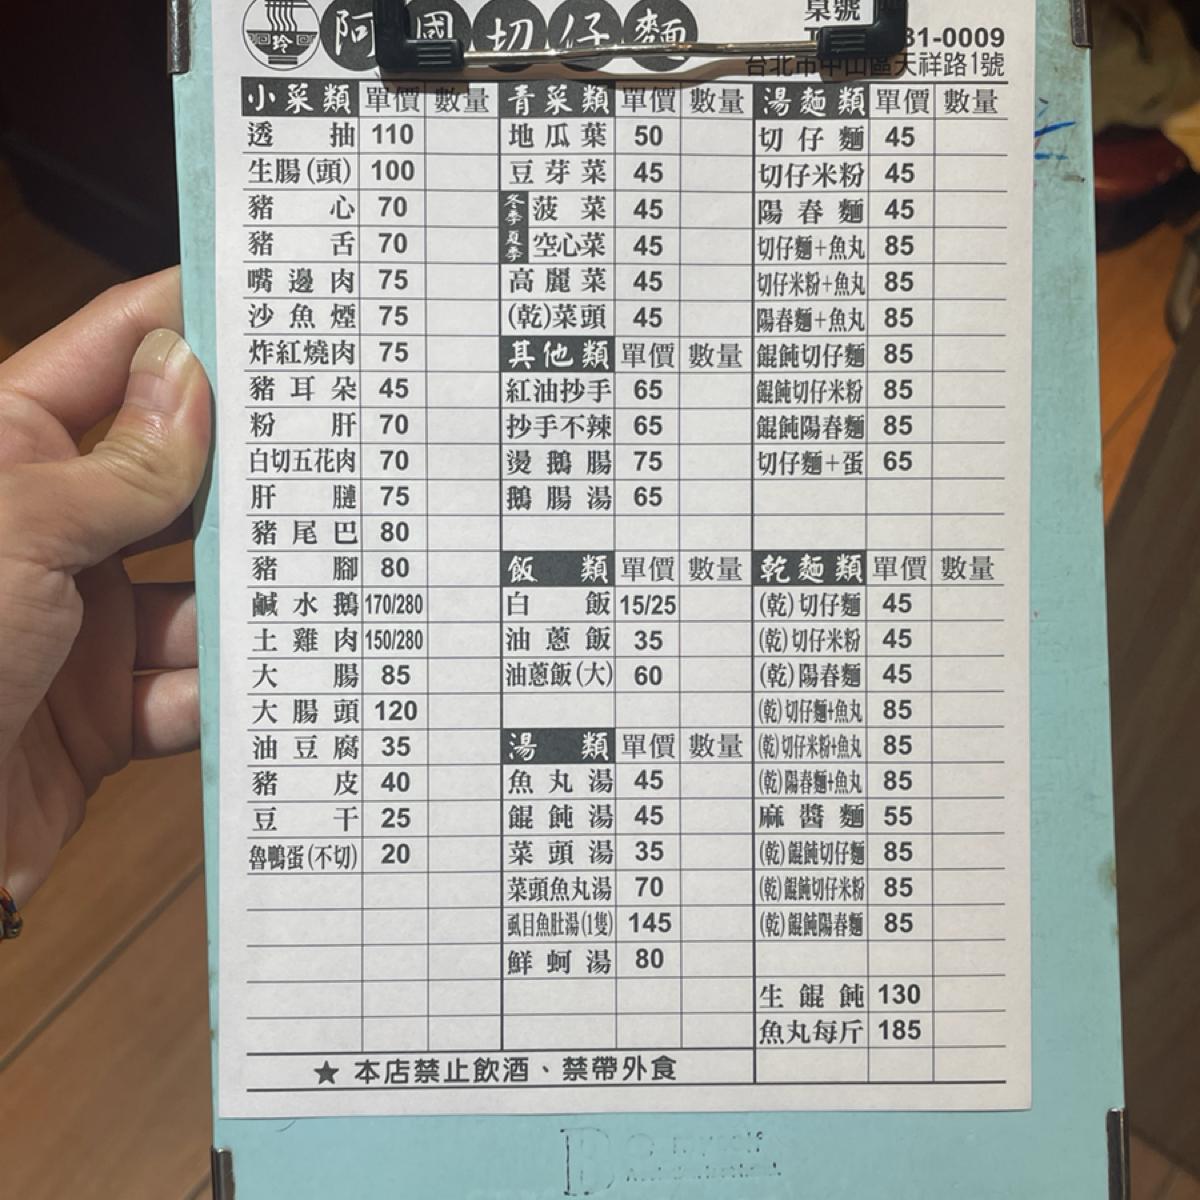 玲 阿國切仔麵
桌號
31-0009
台北市中山區天祥路1號
小菜類 單價 數量
透抽 110
生腸(頭) 100
豬心 70
豬舌 70
嘴邊肉 75
沙魚煙 75
炸紅燒肉 75
豬耳朵 45
粉肝 70
白切五花肉 70
肝膴 75
豬尾巴 80
豬腳 80
鹹水鵝 170/280
土雞肉 150/280
大腸 85
大腸頭 120
油豆腐 35
豬皮 40
豆干 25
魯鴨蛋(不切) 20
青菜類 單價 數量
地瓜葉 50
豆芽菜 45
冬季 菠菜 45
夏季 空心菜 45
高麗菜 45
(乾)菜頭 45
其他類 單價 數量
紅油抄手 65
抄手不辣 65
燙鵝腸 75
鵝腸湯 65
飯類 單價 數量
白飯 15/25
油蔥飯 35
油蔥飯(大) 60
湯類 單價 數量
魚丸湯 45
餛飩湯 45
菜頭湯 35
菜頭魚丸湯 70
虱目魚肚湯(1隻) 145
鮮蚵湯 80
湯麵類 單價 數量
切仔麵 45
切仔米粉 45
陽春麵 45
切仔麵+魚丸 85
切仔米粉+魚丸 85
陽春麵+魚丸 85
餛飩切仔麵 85
餛飩切仔米粉 85
餛飩陽春麵 85
切仔麵+蛋 65
乾麵類 單價 數量
(乾)切仔麵 45
(乾)切仔米粉 45
(乾)陽春麵 45
(乾)切仔麵+魚丸 85
(乾)切仔米粉+魚丸 85
(乾)陽春麵+魚丸 85
麻醬麵 55
(乾)餛飩切仔麵 85
(乾)餛飩切仔米粉 85
(乾)餛飩陽春麵 85
生餛飩 130
魚丸每斤 185
★ 本店禁止飲酒、禁帶外食